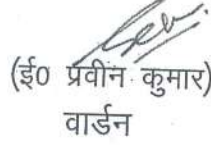 (ई0 प्रवीन कुमार)
वार्डन